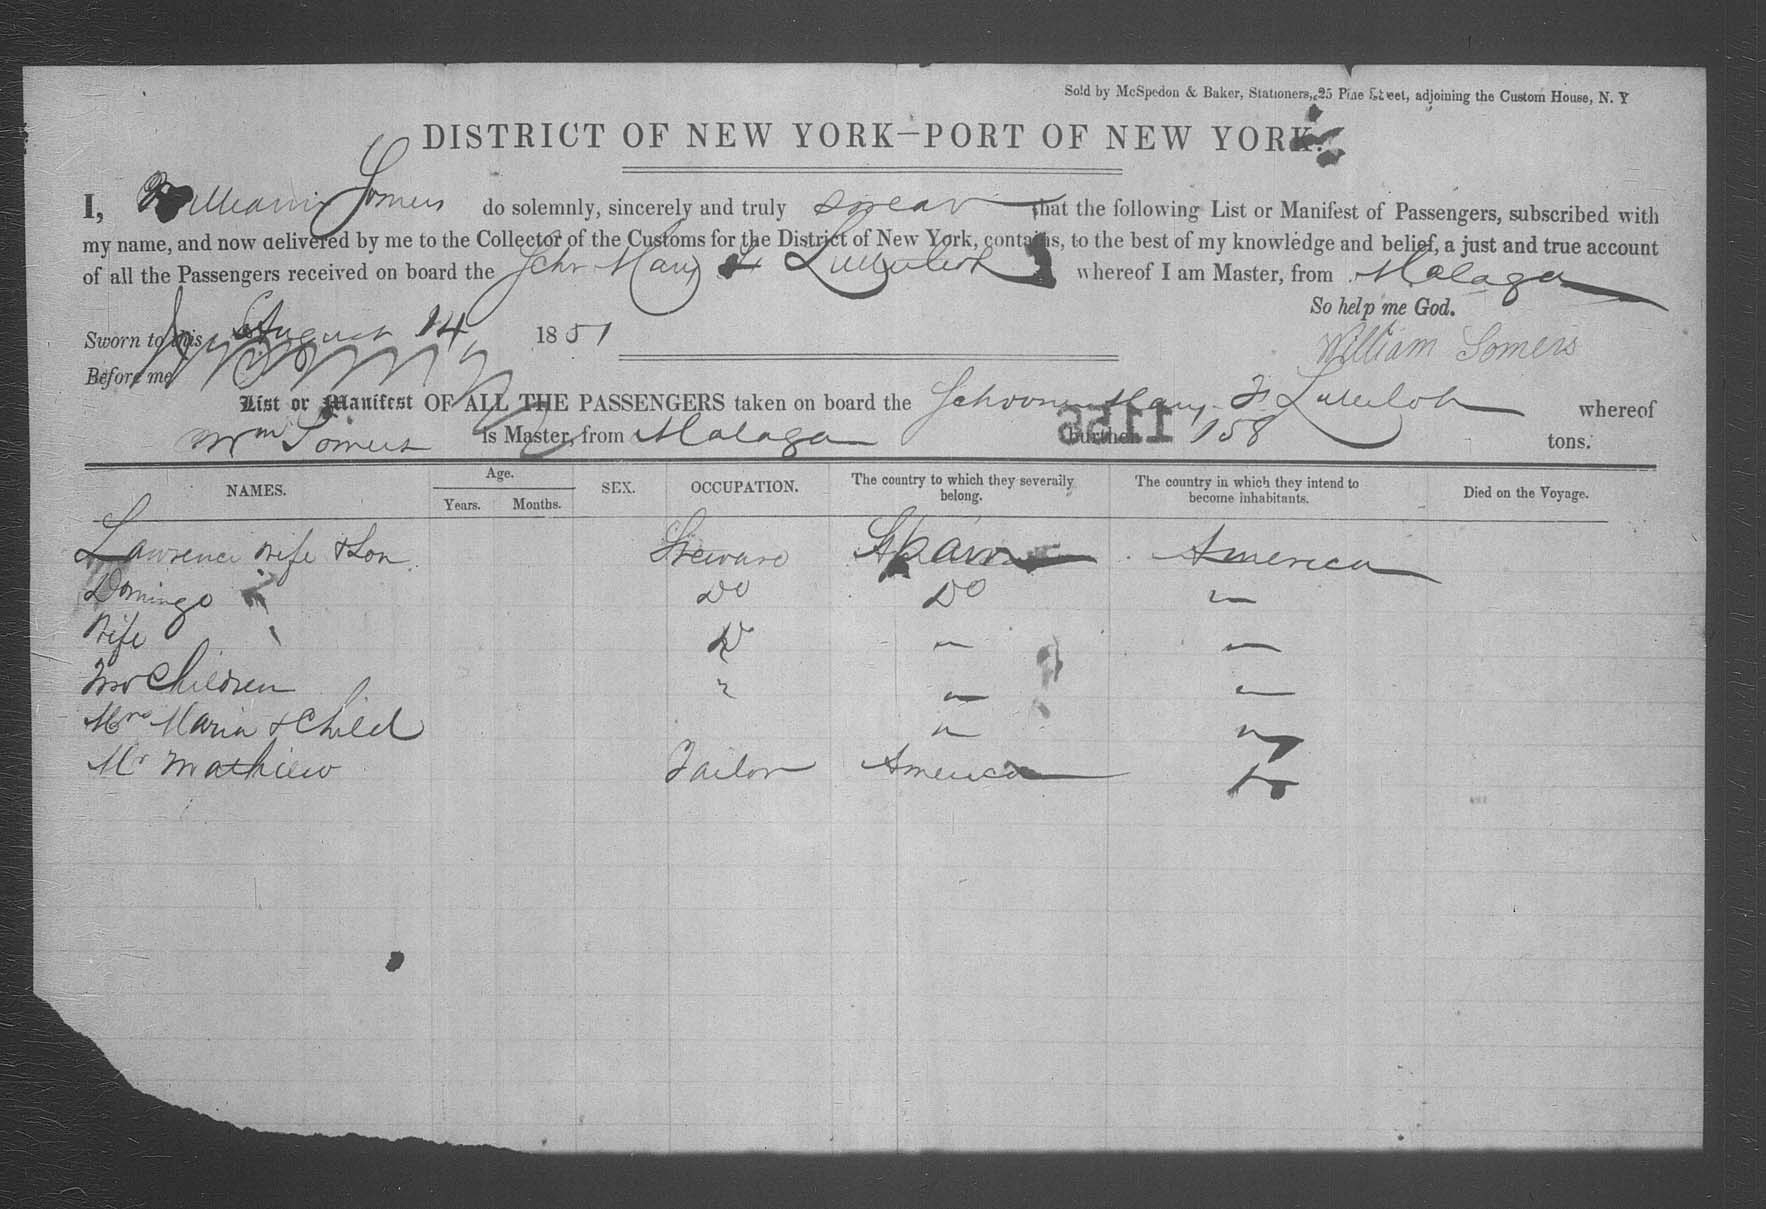 Sold by McSpedon & Baker, Stationers, 25 Pine Street, adjoining the Custom House, N. Y
DISTRICT OF NEW YORK—PORT OF NEW YORK.
I, William Somers do solemnly, sincerely and truly swear that the following List or Manifest of Passengers, subscribed with
my name, and now delivered by me to the Collector of the Customs for the District of New York, contains, to the best of my knowledge and belief, a just and true account
of all the Passengers received on board the Schr Mary whereof I am Master, from Malaga
So help me God.
Sworn to this August 14, 1851
William Somers
Before me
List or Manifest OF ALL THE PASSENGERS taken on board the Schooner Mary whereof
Wm Somers is Master, from Malaga burthen 158 tons.
1156
NAMES. Age. Years. Months. SEX. OCCUPATION. The country to which they severally belong. The country in which they intend to become inhabitants. Died on the Voyage.
Lawrence wife & Son Steward Spain America
Domingo Do Do "
Wife Do " "
Two Children " " "
Mrs Maria & Child " "
Mr Mathiew Tailor America